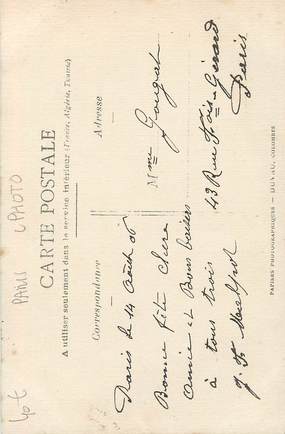 PARIS cPHOTO
40 €
CARTE POSTALE
A utiliser seulement dans le service intérieur (France, Algérie, Tunisie)
Correspondance
Adresse
Paris le 14 Août 06
Bonne fête chère
Amie et Bons baisers
à tous trois
Mme Gouget
43 Rue Fçois Gérard
Paris
PAPIERS PHOTOGRAPHIQUES — DUVAU, COLOMBES